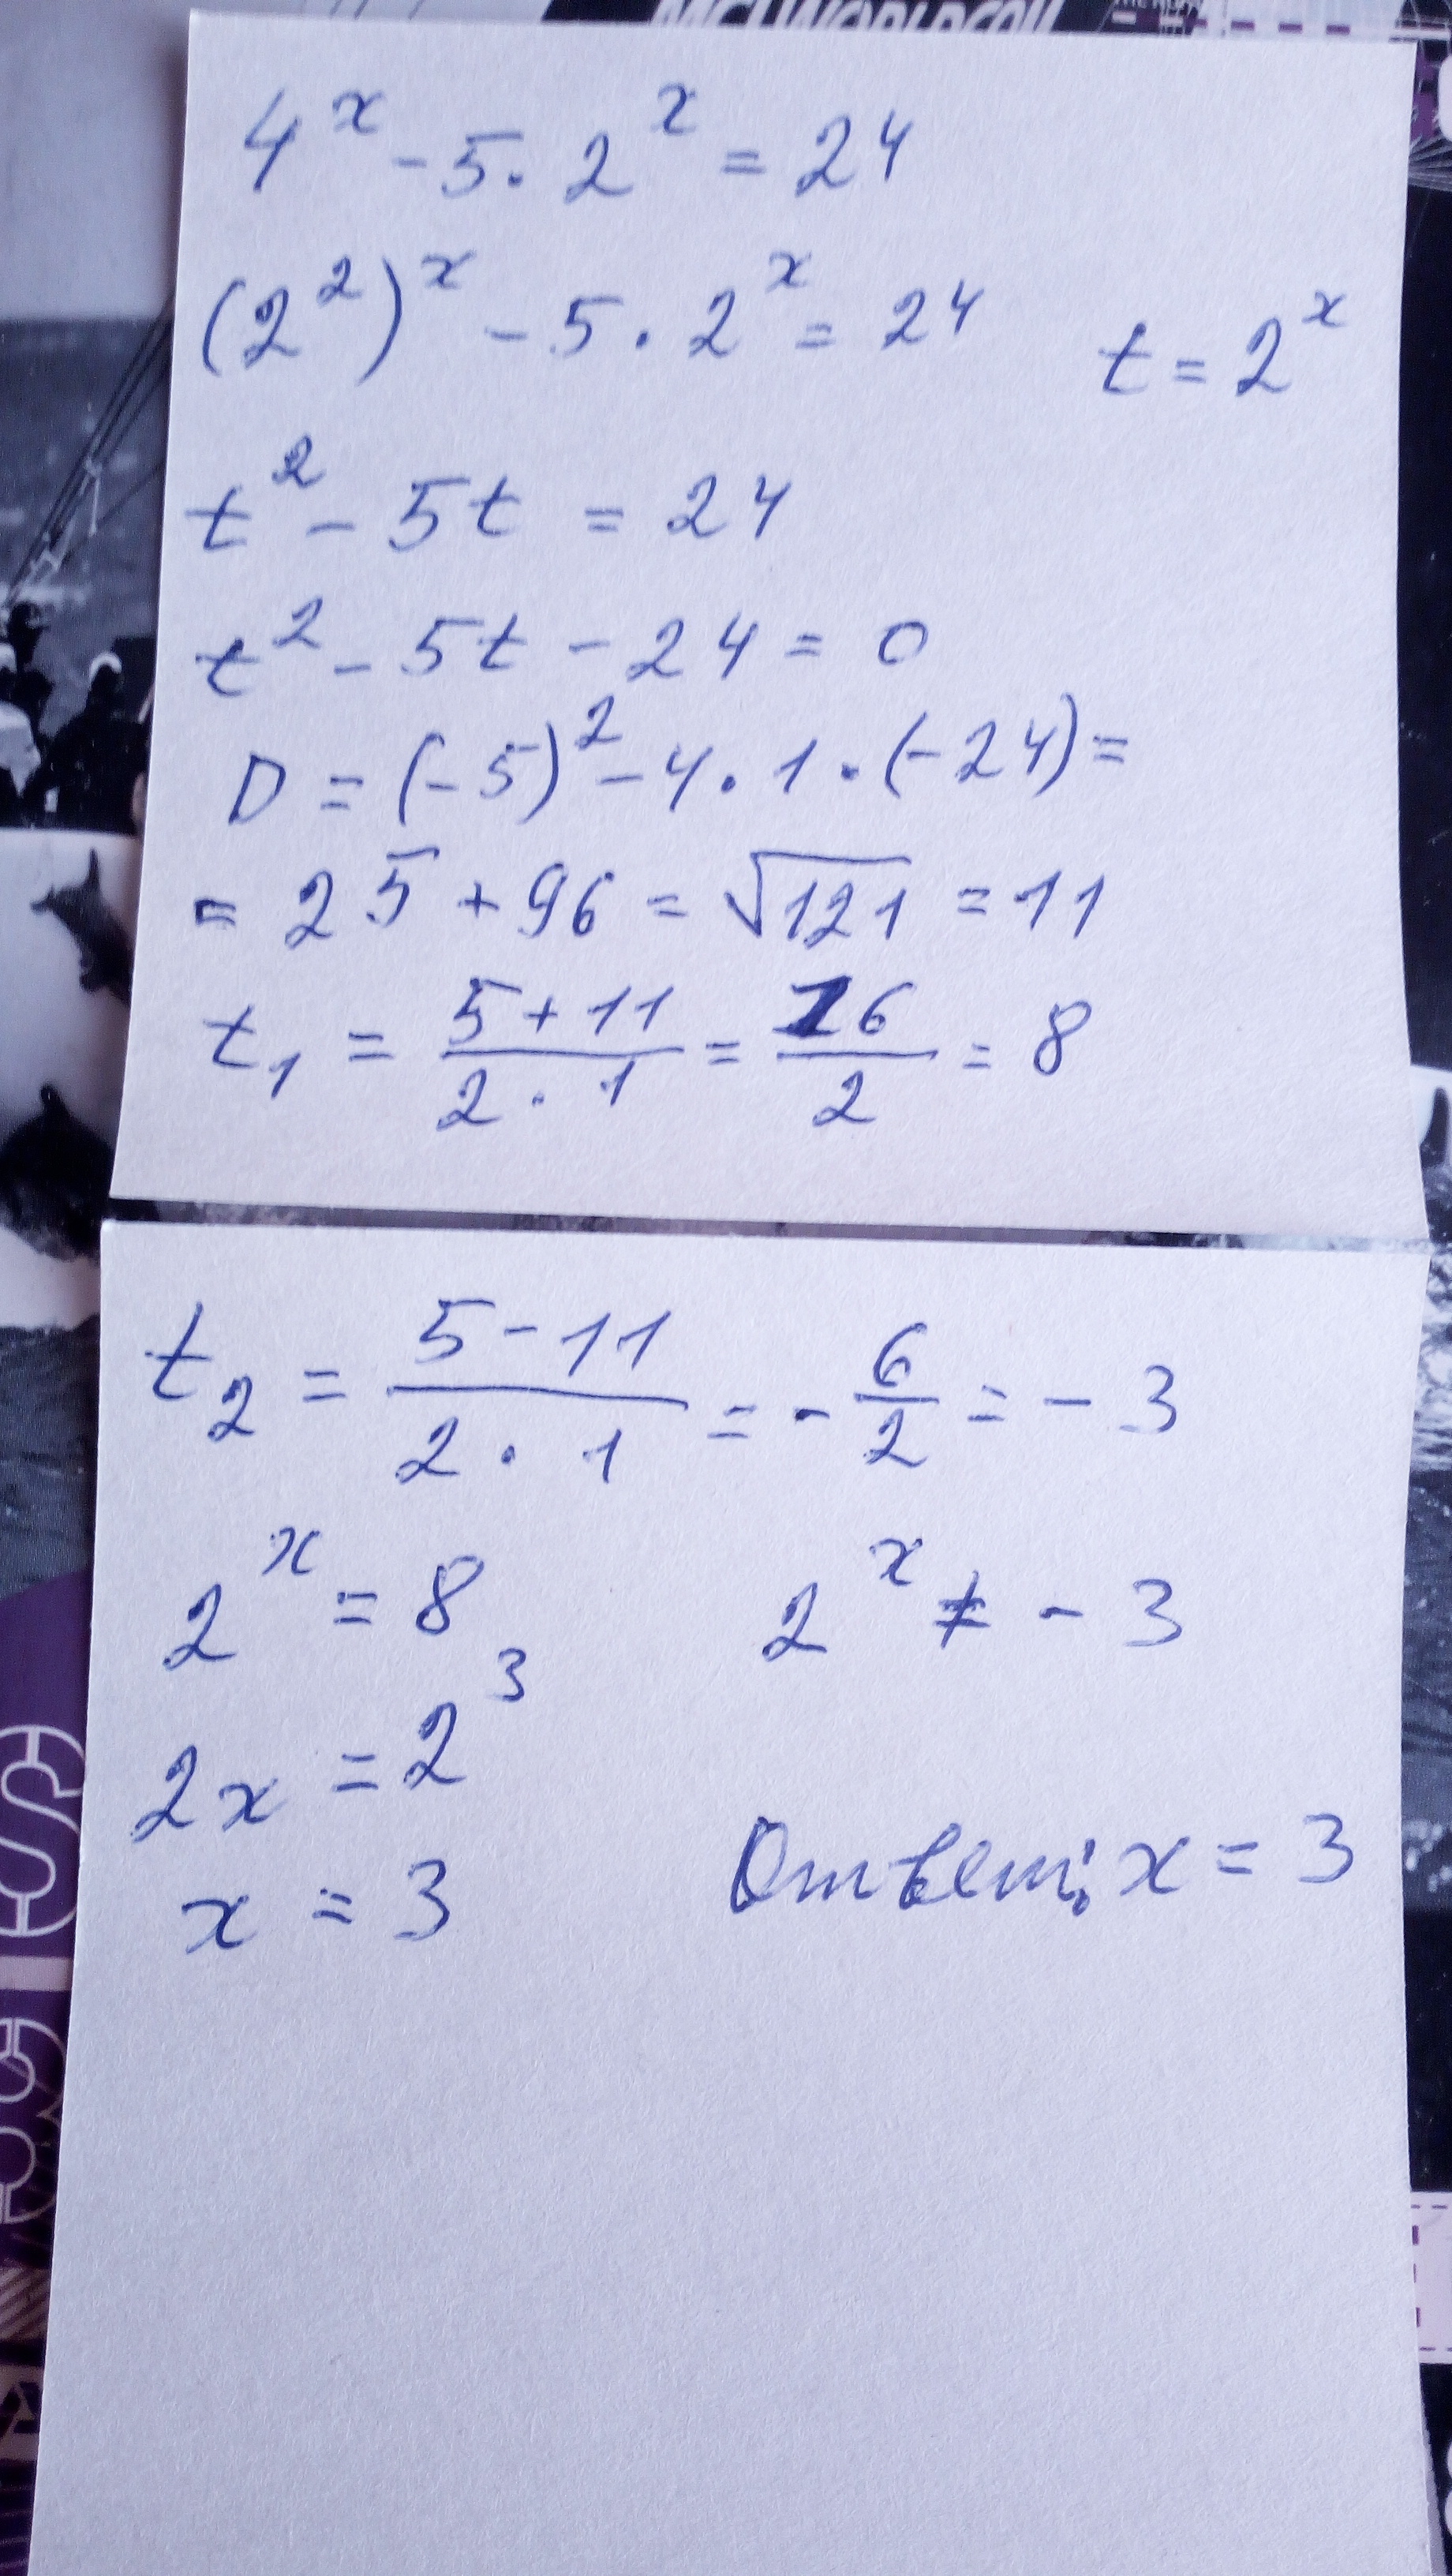 4^x - 5 · 2^x = 24
(2^2)^x - 5 · 2^x = 24 t = 2^x
t^2 - 5t = 24
t^2 - 5t - 24 = 0
D = (-5)^2 - 4 · 1 · (-24) =
= 25 + 96 = √121 = 11
t_1 = (5 + 11)/(2 · 1) = 16/2 = 8
t_2 = (5 - 11)/(2 · 1) = - 6/2 = - 3
2^x = 8 2^x ≠ - 3
2x = 2^3
x = 3 Ответ: x = 3